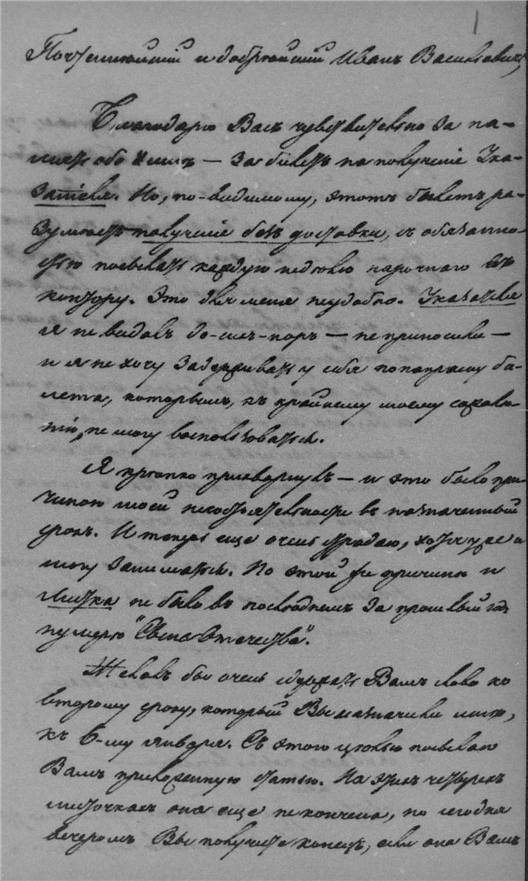 1
Почтеннѣйшій и добрѣйшій Иванъ Васильевичъ,
Благодарю Васъ чувствительно за па-
мять обо мнѣ — за билетъ на полученіе Ука-
зателя. Но, по-видимому, этотъ билетъ ра-
зумѣетъ полученіе безъ доставки, съ обязанно-
стью посылать каждую недѣлю нарочнаго въ
контору. Это для меня неудобно. Указателя
я не видалъ до-сихъ-поръ — не приносили —
и я не хочу задерживать у себя понапрасну би-
лета, которымъ, къ крайнему моему сожалѣ-
нію, не могу воспользоваться.
Я крѣпко прихворнулъ — и это было при-
чиною моей несостоятельности въ назначенный
срокъ. И теперь еще очень страдаю, хотя уже и
могу заниматься. По этой же причинѣ и
Листка не было въ послѣднемъ за прошлый годъ
нумерѣ "Сына Отечества".
Желалъ бы очень сдержать Вамъ слово ко
второму сроку, который Вы назначили мнѣ,
къ 6-му января. Съ этою цѣлью посылаю
Вамъ приложенную статью. На этихъ четырехъ
листочкахъ она еще не кончена, но сегодня
вечеромъ Вы получите конецъ, если она Вамъ